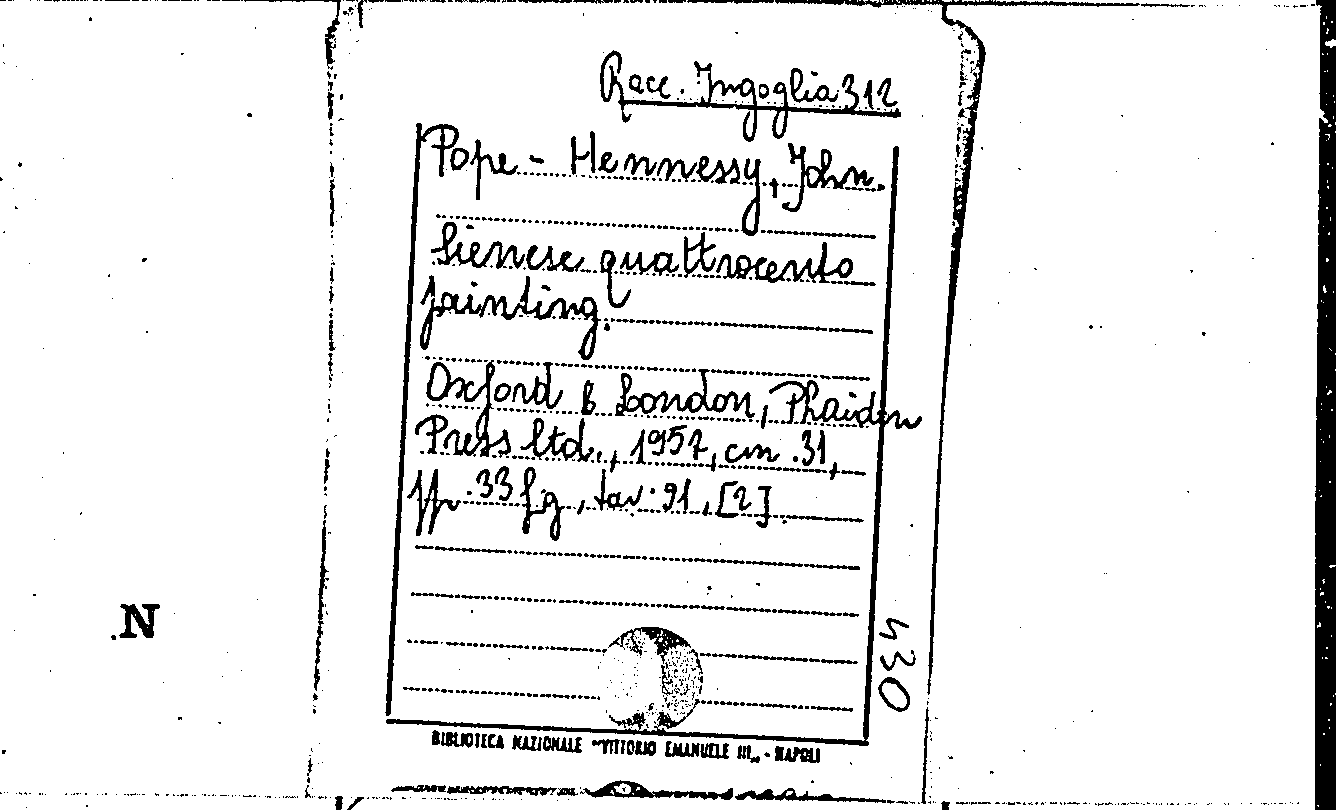 Racc. Ingoglia 312
Pope-Hennessy, John.
Sienese quattrocento
painting.
Oxford & London, Phaidon
Press ltd., 1957, cm. 31,
pp. 33 fg, tav. 91, [2].
430
N
BIBLIOTECA NAZIONALE "VITTORIO EMANUELE III„ - NAPOLI